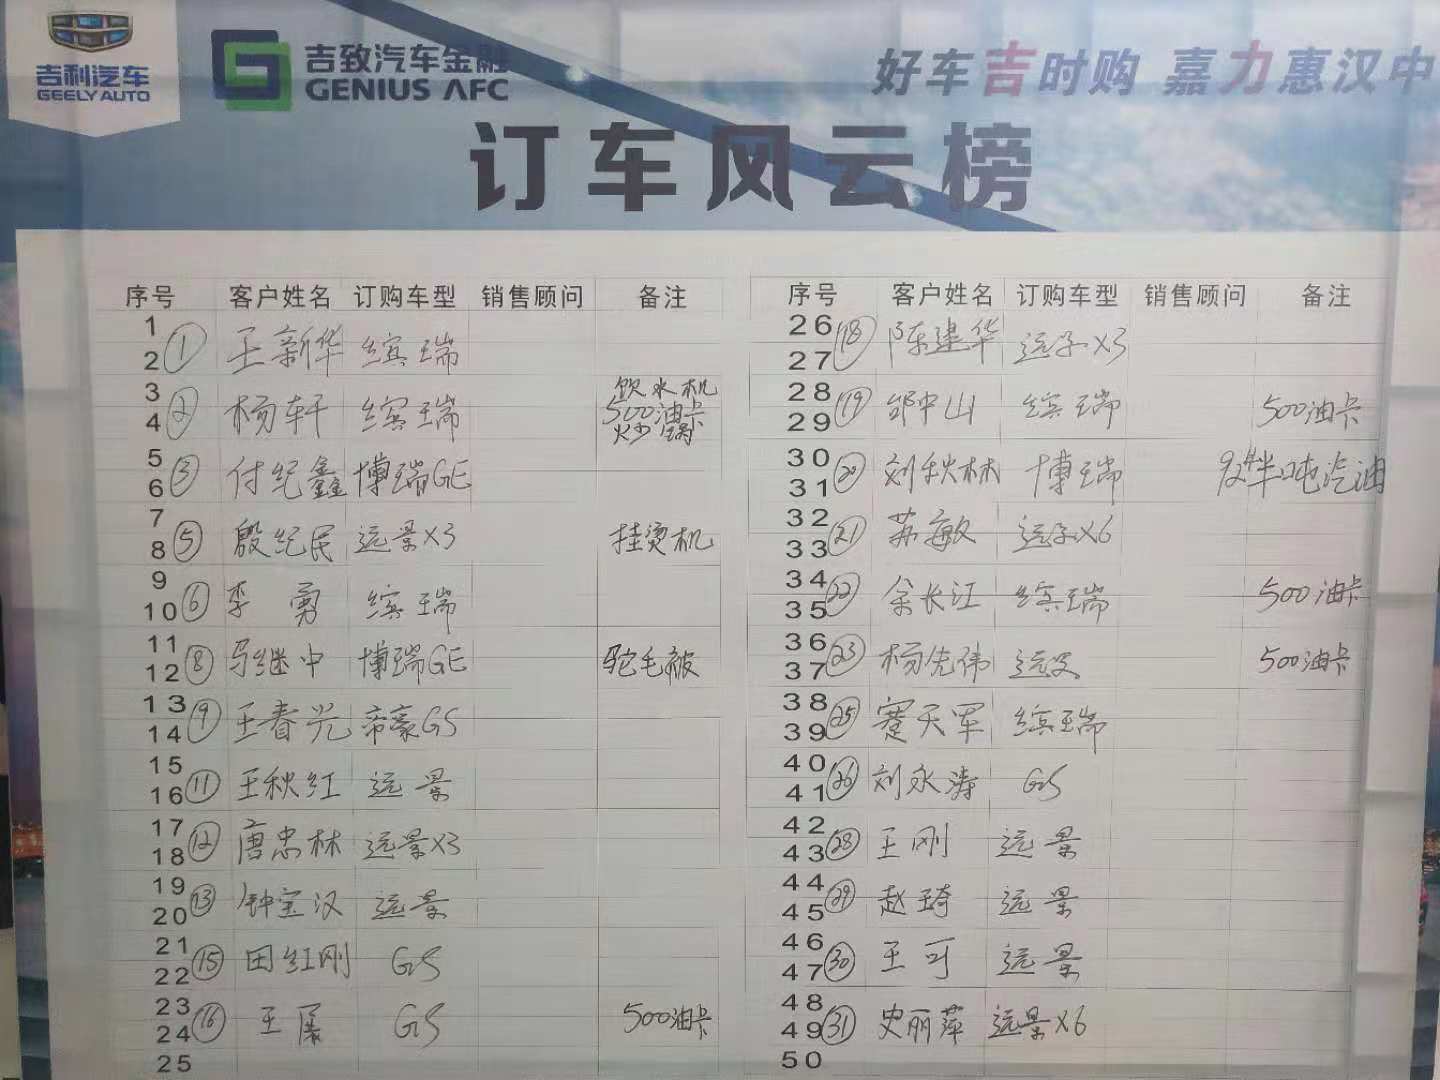 吉利汽车
GEELY AUTO
吉致汽车金融
GENIUS AFC
好车吉时购 嘉力惠汉中
订车风云榜
序号 客户姓名 订购车型 销售顾问 备注
1
2 ① 王新华 缤瑞
3
4 ② 杨轩 缤瑞 饮水机 500油卡 炒锅
5
6 ③ 付纪鑫 博瑞GE
7
8 ⑤ 殷纪民 远景X3 挂烫机
9
10 ⑥ 李勇 缤瑞
11
12 ⑧ 马继中 博瑞GE 驼毛被
13
14 ⑨ 王春光 帝豪GS
15
16 ⑪ 王秋红 远景
17
18 ⑫ 唐忠林 远景X3
19
20 ⑬ 钟宝汉 远景
21
22 ⑮ 田红刚 GS
23
24 ⑯ 王展 GS 500油卡
25
序号 客户姓名 订购车型 销售顾问 备注
26
27 ⑱ 陈建华 远景X3
28
29 ⑲ 邰中山 缤瑞 500油卡
30
31 ⑳ 刘秋林 博瑞 92#半吨汽油
32
33 ㉑ 苏敏 远景X6
34
35 ㉒ 余长江 缤瑞 500油卡
36
37 ㉓ 杨先伟 远景 500油卡
38
39 ㉕ 蹇天军 缤瑞
40
41 ㉖ 刘永涛 GS
42
43 ㉘ 王刚 远景
44
45 ㉙ 赵琦 远景
46
47 ㉚ 王可 远景
48
49 ㉛ 史丽萍 远景X6
50